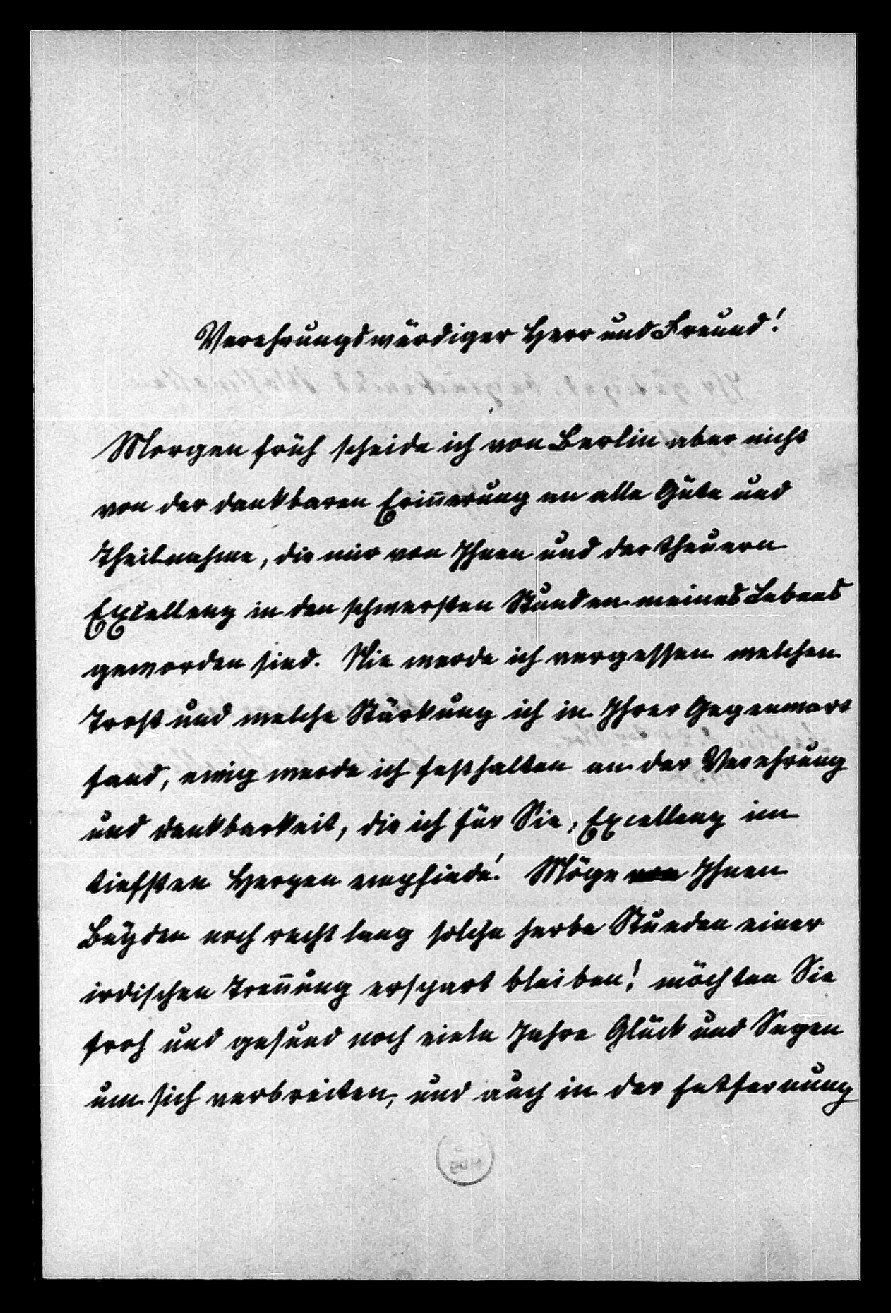 Verehrungswürdiger Herr und Freund!
Morgen früh scheide ich von Berlin aber nicht
von der dankbaren Erin̄erung an alle Güte und
Theilnahme, die mir von Ihnen und der theuern
Excellenz in den schwersten Stunden meines Lebens
geworden sind. Nie werde ich vergessen welchen
Trost und welche Stärkung ich in Ihrer Gegenwart
fand, ewig werde ich festhalten an der Verehrung
und Dankbarkeit, die ich für Sie, Excellenz im
tiefsten Herzen empfinde! Möge Ihnen
Beyden noch recht lang solche herbe Stunden einer
irdischen Tren̄ung erspart bleiben! möchten Sie
froh und gesund noch viele Jahre Glück und Segen
um sich verbreiten, und auch in der Entfernung